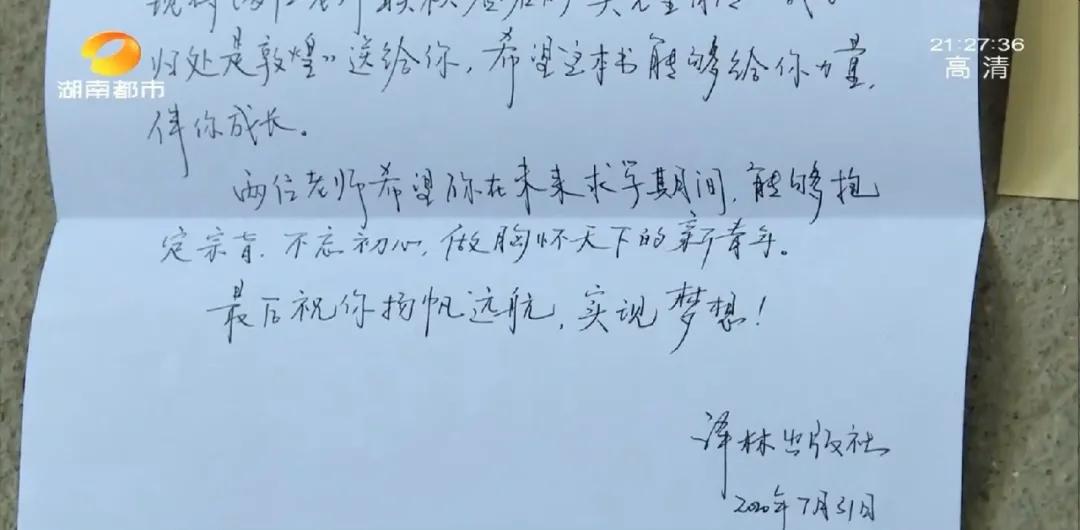 湖南都市
21:27:36
高清
现将两位老师
归处是敦煌》送给你，希望这本书能够给你力量，
伴你成长。
两位老师希望你在未来求学期间，能够抱
定宗旨，不忘初心，做胸怀天下的新青年。
最后祝你扬帆远航，实现梦想！
译林出版社
2020年7月31日